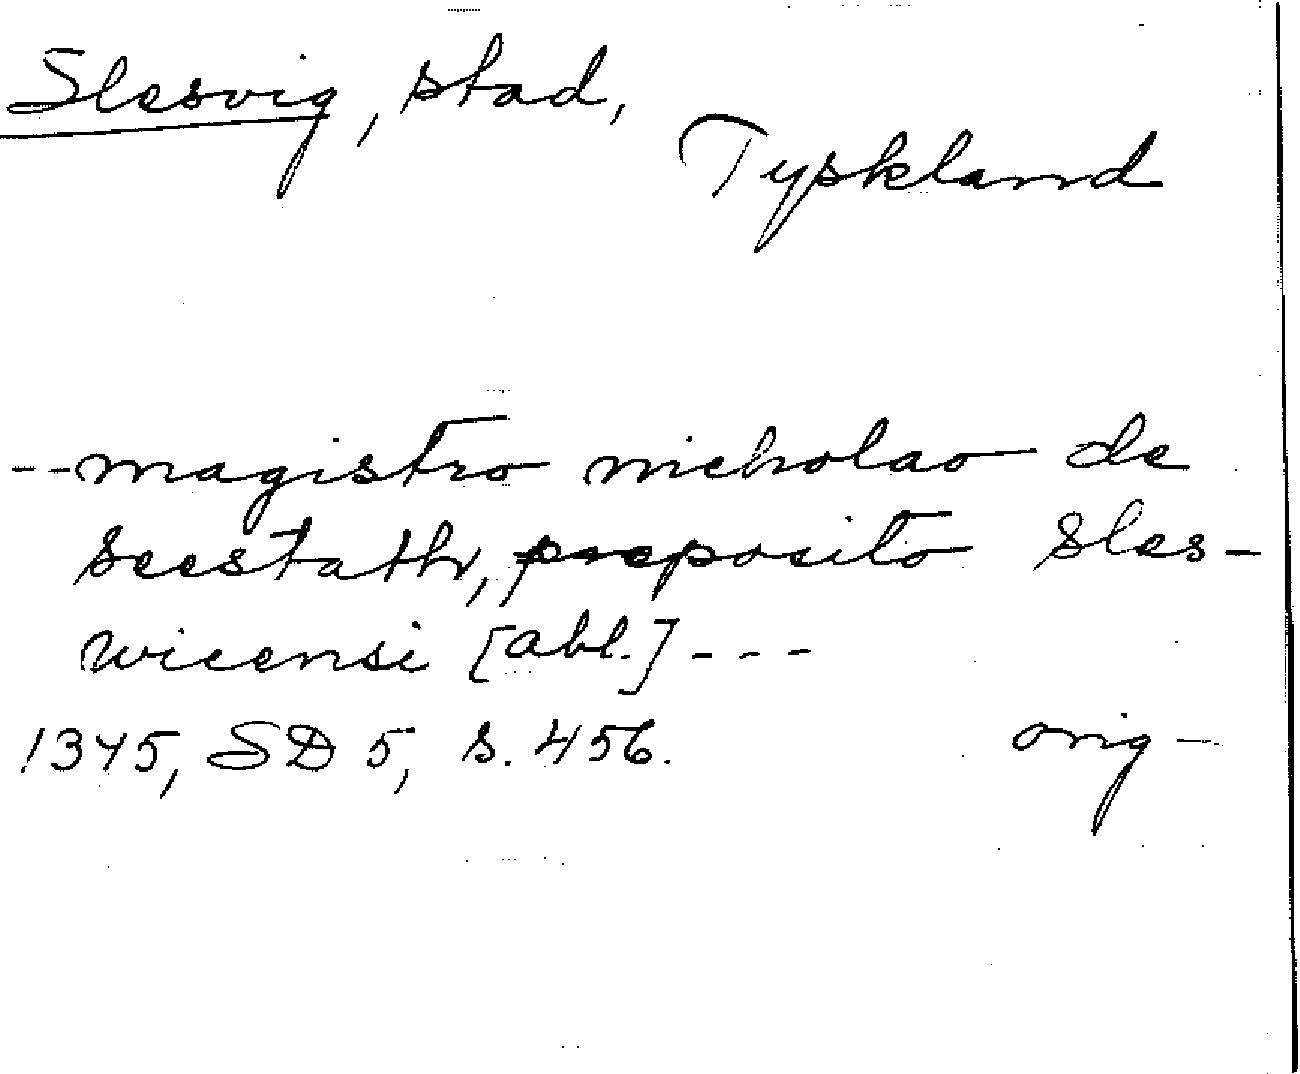 Slesvig, stad,
Tyskland
--magistro nicholao de
Seestath, preposito Sles-
wicensi [abl.]---
1345, SD 5, s. 456. orig-